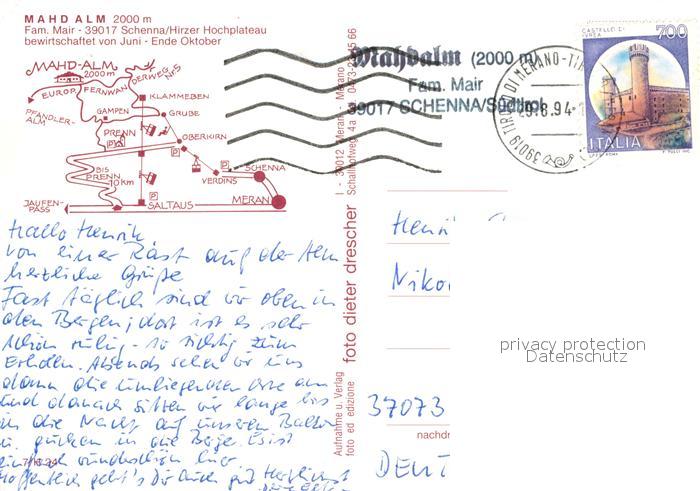 MAHD ALM 2000 m
Fam. Mair - 39017 Schenna/Hirzer Hochplateau
bewirtschaftet von Juni - Ende Oktober
MAHD-ALM
2000 m
EUROP. FERNWANDERWEG Nr5
KLAMMEBEN
PFANDLER-
ALM
GAMPEN
GRUBE
PRENN
OBERKIRN
P
P
BIS
PRENN
10 km
VERDINS
SCHENNA
P
JAUFEN-
PASS
SALTAUS
MERAN
Hallo Henrik
von einer Rast auf der Alm
herzliche Grüße
Fast täglich sind wir oben in
den Bergen, dort ist es sehr
schön ruhig - so richtig zum
Erholen. Abends sehen wir uns
dann die umliegenden Orte an
und danach sitten wir lange bis
in die Nacht auf unserem Balkon
u. gucken in die Berge. Es ist
einfach wunderschön hier.
Hoffentlich geht's Dir auch gut Herzlichst
7/18 24
Aufnahme u. Verlag
foto ed edizione
foto dieter drescher
I - 39012 Meran - Merano
Mahdalm (2000 m)
Fam. Mair
39017 SCHENNA/Südtirol
39019 TIROLO DI MERANO-TIR
29.8.94
CASTELLO DI
IVREA
700
ITALIA
Henri
Niko
37073
nachdr
DEUT
privacy protection
Datenschutz